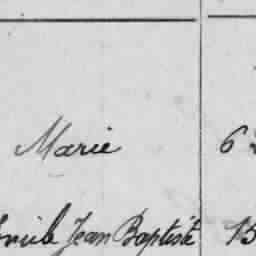 Marie 6
Jean Baptiste 15